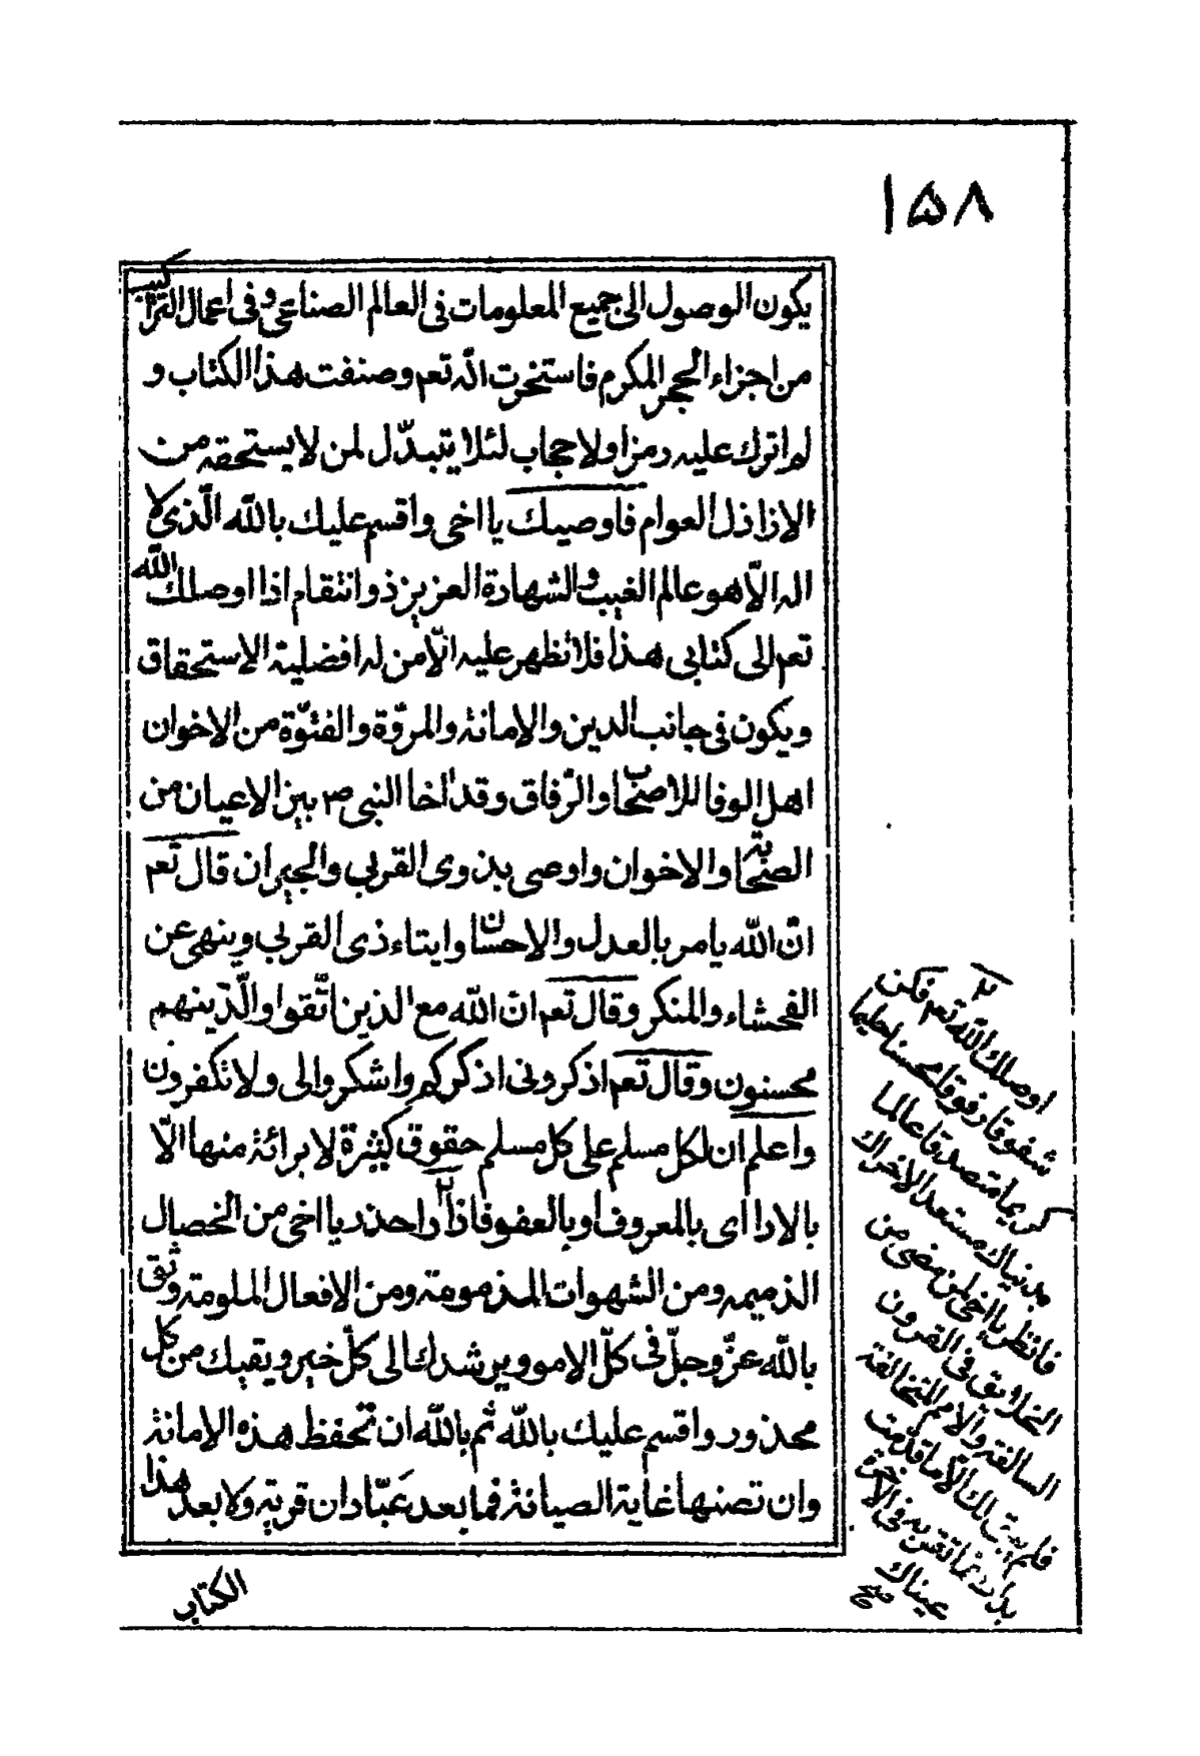 ۱۵۸
يكون الوصول الى جميع المعلومات فى العالم الصناعى وفى اعمال التراكيب
من اجزاء الحجر المكرم فاستخرت الله تعم وصنفت هذا الكتاب و
لم اترك عليه رمزا ولا حجاب لئلا يتبدّل لمن لا يستحقه من
الاراذل العوام فاوصيك يا اخى واقسم عليك بالله الّذى لا
اله الّا هو عالم الغيب والشهادة العزيز ذو انتقام اذا اوصلك الله
تعم الى كتابى هذا فلا تظهر عليه الّا من له افضلية الاستحقاق
ويكون فى جانب الدين والامانة والمروّة والفتوّة من الاخوان
اهل الوفا للاصحاب والرّفاق وقد اخا النبى ص بين الاعيان من
الصحابة والاخوان واوصى بذوى القربى والجيران قال تعم
انّ الله يامر بالعدل والاحسان وايتاء ذى القربى وينهى عن
الفحشاء والمنكر وقال تعم انّ الله مع الذين اتّقوا والّذينهم
محسنون وقال تعم اذكرونى اذكركم واشكروا لى ولا تكفرون
واعلم ان لكل مسلم على كل مسلم حقوق كثيرة لا برائة منها الّا
بالادا اى بالمعروف او بالعفو فاذا ٢ واحذر يا اخى من الخصال
الذميمه ومن الشهوات المذمومة ومن الافعال الملومة وثق
بالله عزّ وجلّ فى كلّ الامور ويرشدك الى كلّ خير ويقيك من كل
محذور واقسم عليك بالله ثم بالله ان تحفظ هذه الامانة
وان تصنها غاية الصيانة فما بعد عَبّادان قرية ولا بعد هذا
الكتاب
٢
اوصلك الله تعم فكن
شفوقا رفوقا محسنا حليما
كريما متصدقا عالما
بدنياك مستعد الاخراك
فانظر يا اخى لمن مضى من
الخلايق فى القرون
السالفة والامم المتخالفة
فلم يبق لك الّا ما قدّمت
يداك مما تقرّ به فى الاخرة
عيناك
صح